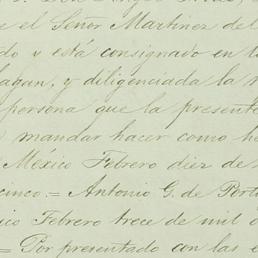 e el Señor Martinez del
do y está consignado en t
hagan, y diligenciada la
persona que la present
mandar hacer como h
México Febrero diez de
cinco.= Antonio G. de Port
ico Febrero trece de mil
= Por presentado con las